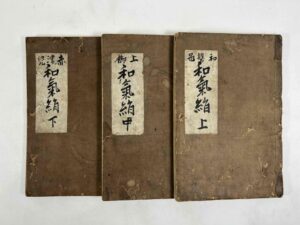 和磐邑
和氣絹 上
上御
和氣絹 中
赤津児
和氣絹 下